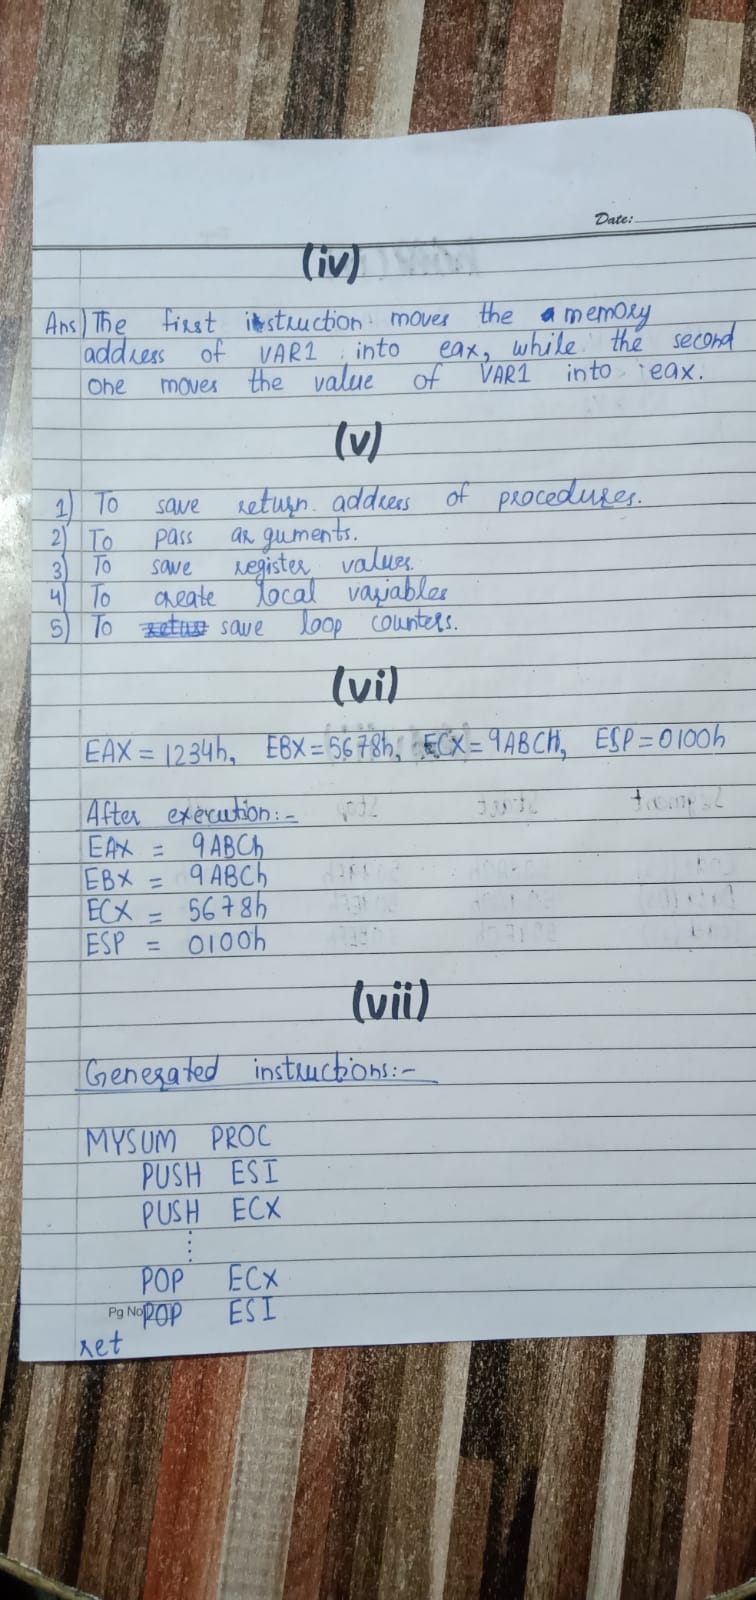 Date:
(iv)
Ans) The first instruction moves the memory
address of VAR1 into eax, while the second
one moves the value of VAR1 into eax.
(v)
1) To save return address of procedures.
2) To pass arguments.
3) To save register values.
4) To create local variables
5) To save loop counters.
(vi)
EAX = 1234h, EBX = 5678h, ECX = 9ABCH, ESP = 0100h
After execution:-
EAX = 9ABCh
EBX = 9ABCh
ECX = 5678h
ESP = 0100h
(vii)
Generated instructions:-
MYSUM PROC
PUSH ESI
PUSH ECX
⋮
POP ECX
Pg No POP ESI
ret